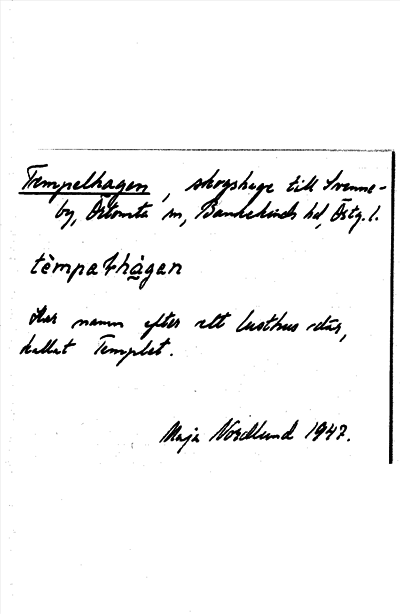 Tempelhagen, skogshage till Svenne-
by, Örtomta sn, Bankekinds hd, Östg. l.
tèmpaɫhàgan
Har namn efter ett lusthus där,
kallat Templet.
Maja Nordlund 1947.